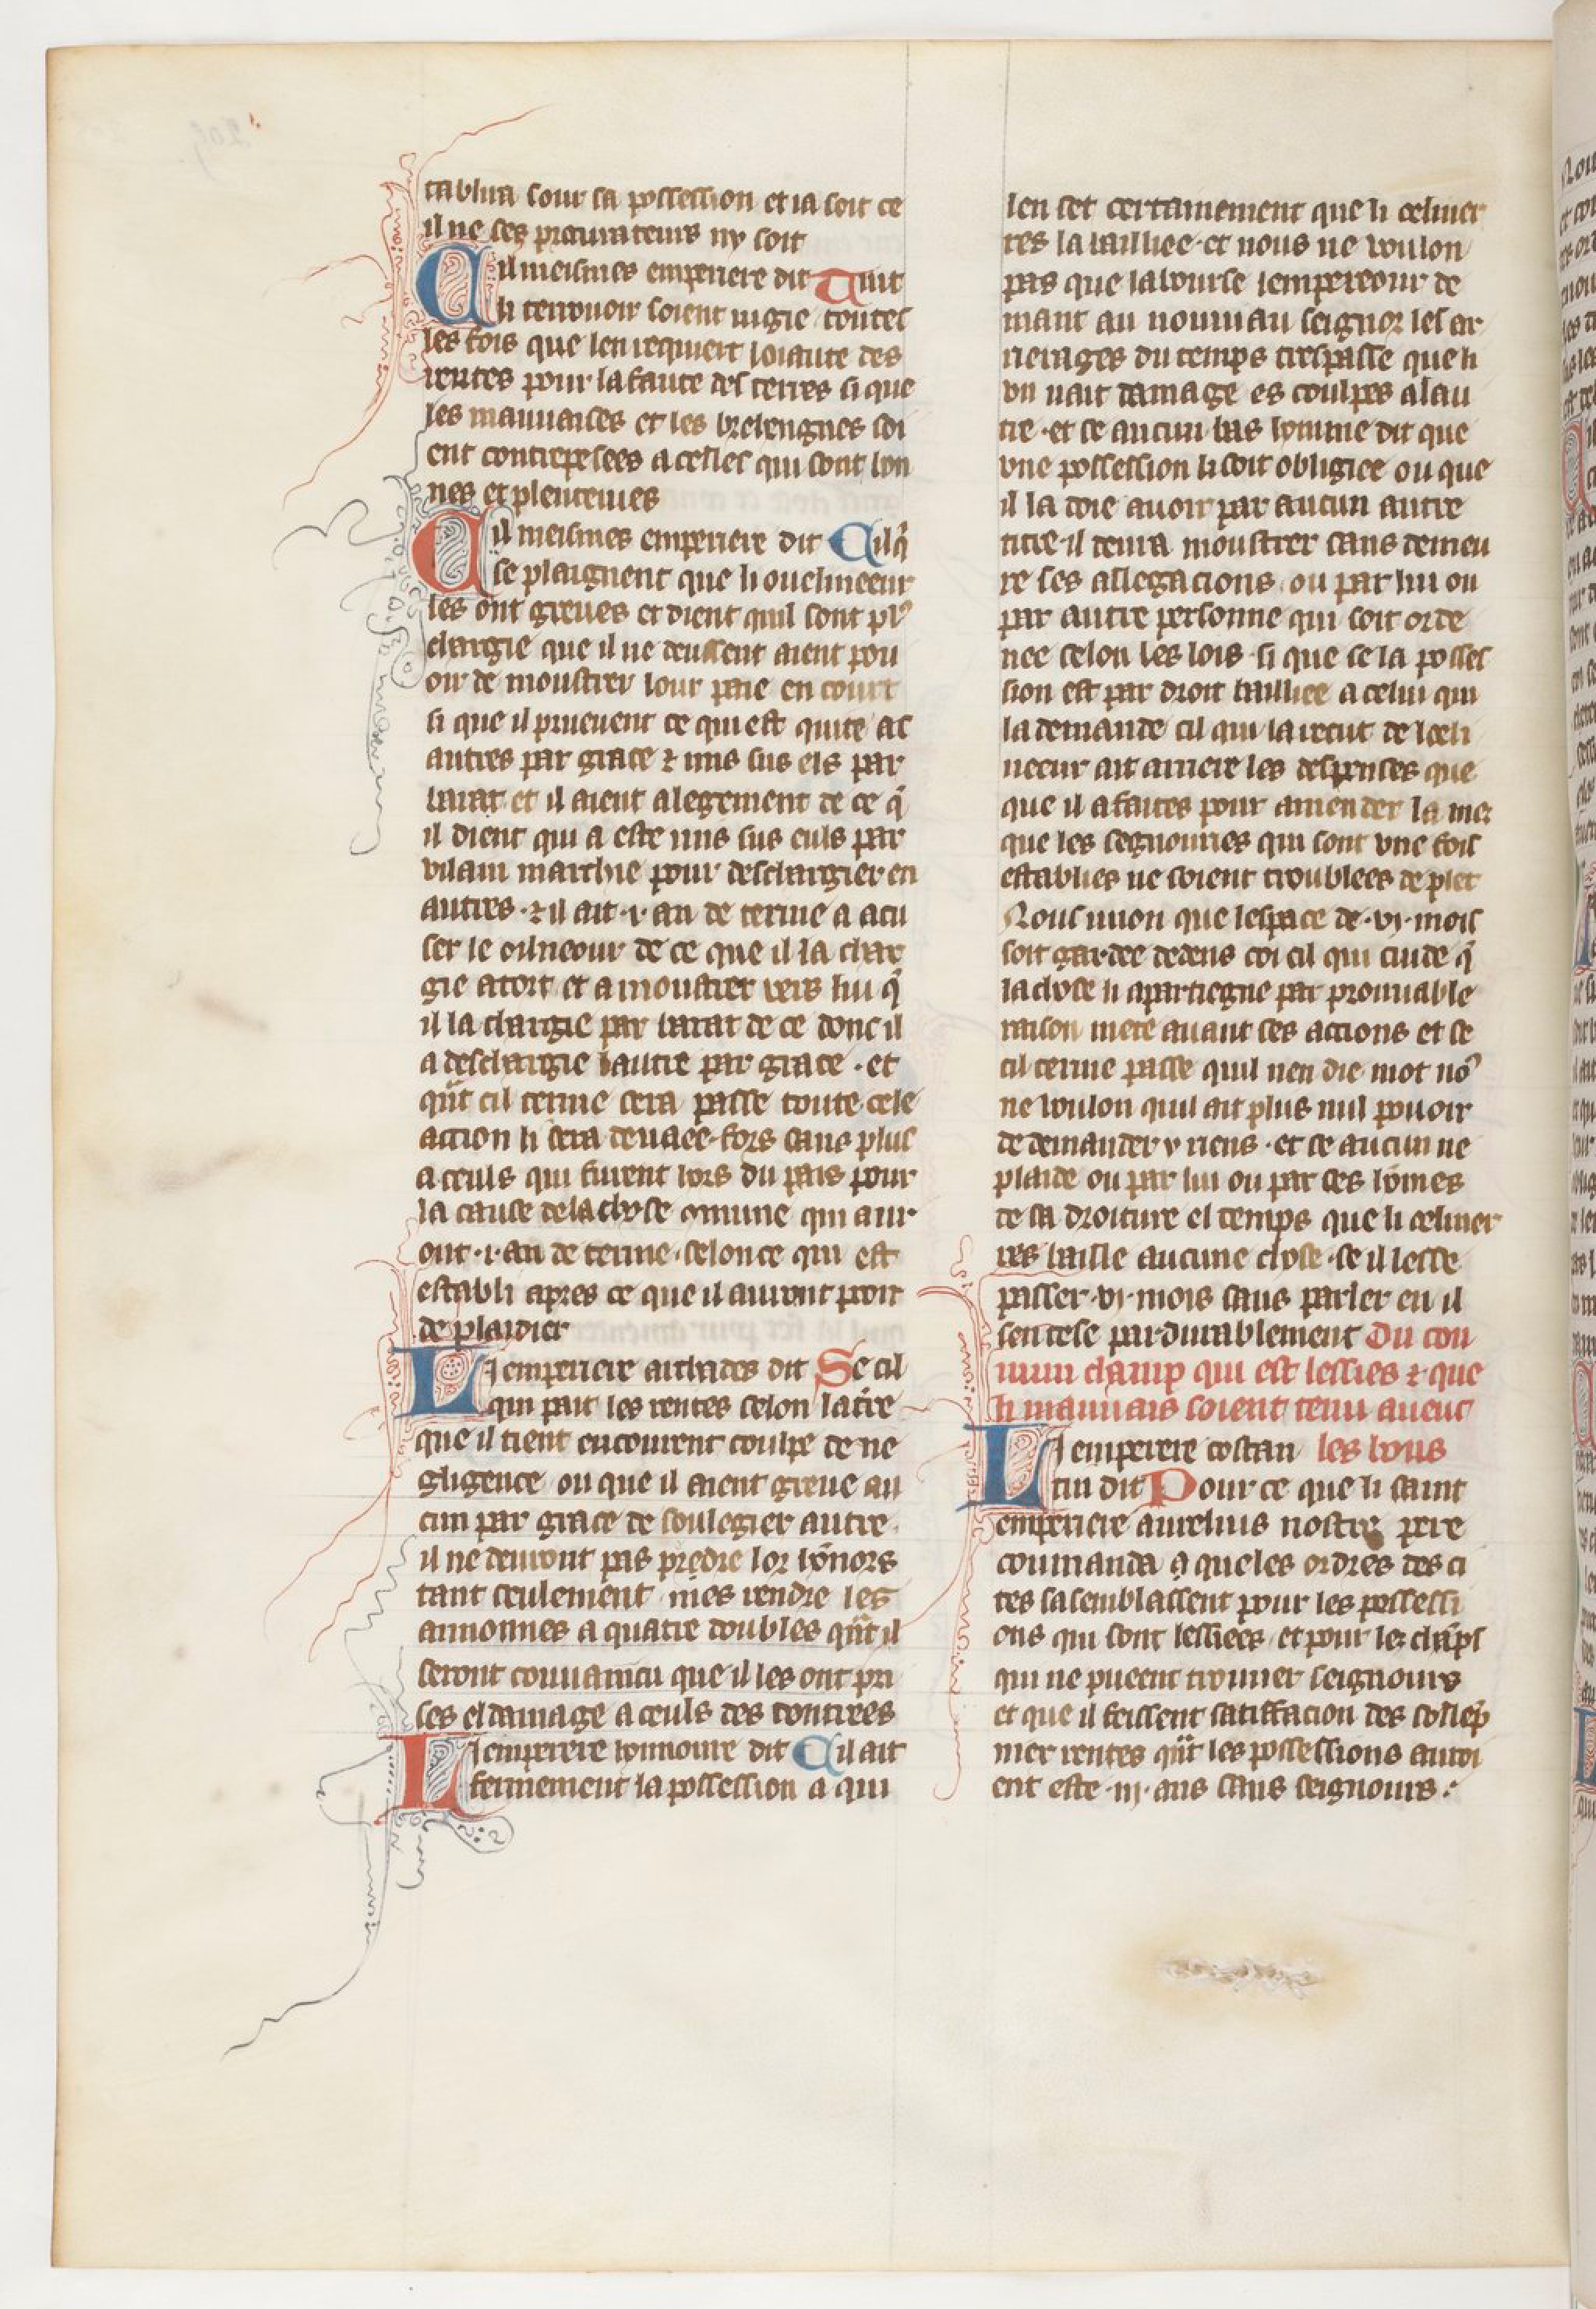 tablira sour sa possession et ia soit ce
il ne ses procurateurs ny soit
Cil meismes emperiere dit Tuit
li terrouoir soient iugie toutes
les fois que len requiert loiaute des
rentes pour la faute des terres si que
les mauuaises et les brelengnes soi
ent contrepesees a celles qui sont bon
nes et plenteiues
Cil meismes emperiere dit Cil q̃
se plaignent que li ouelineeur
les ont greues et dient quil sont pl9
chargie que il ne deussent aient pou
oir de moustrer lour paie en court
si que il prueuent ce qui est quite as
autres par grace ⁊ mis sus els par
barat et il aient alegement de ce q̃
il dient qui a este mis sus euls par
vilain marchie pour deschargier en
autres ·⁊ il ait ·i· an de terme a acu
ser le oilneour de ce que il la char
gie a tort et a moustrer vers lui q̃
il la chargie par barat de ce donc il
a deschargie lautre par grace · et
qñt cil terme sera passe toute cele
action li sera deuaee fors sans plus
a ceuls qui furent hors du pais pour
la cause de la chose cōmune qui aur
ont ·i· an de terme selonc ce qui est
establi apres ce que il auront pooir
de plaidier
Li emperiere archades dit Se cil
qui pait les rentes selon la tire
que il tient encourent coulpe de ne
gligence ou que il aient greue au
cun par grace de soulegier autre
il ne deuront pas p̃dre lor hōnors
tant seulement mes rendre les
annonnes a quatre doubles qñt il
seront conuaincu que il les ont pri
ses el damage a ceuls des contrees
Li emperere honnoire dit Cil ait
fermement la possession a qui
len set certainement que li celiner
res la bailliee et nous ne voulon
pas que la bourse lempereour de
mant au nouuiau seignor les ar
rierages du temps trespasse que li
vn nait damage es coulpes a lau
tre · et se aucun bas homme dit que
vne possession li soit obligiee ou que
il la doie auoir par aucun autre
titre il deura moustrer sans demeu
re ses allegacions ou par lui ou
par autre personne qui soit orde
nee selon les lois si que se la posses
sion est par droit bailliee a celui qui
la demande cil qui la recut de loeli
neeur ait arriere les despenses que
que il a faites pour amender la mes
que les seignouries qui sont vne fois
establies ne soient troublees de plet
Nous uuon que lespace de ·vj· mois
soit gardee dedens coi cil qui cuide q̃
la chose li apartiegne par prouuable
raison mete auant ses actions et se
cil terme passe quil nen die mot no9
ne voulon quil ait plus nul pouoir
de demander y riens · et se aucun ne
plaide ou par lui ou par ses hōmes
de sa droiture el temps que li celiner
res baille aucune chose · se il lesse
passer ·vj· mois sans parler en il
sen tese pardurablement Du cou
mun champ qui est lessies ⁊ que
li mauuais soient tenu auecc
Li emperere costan les bons
tin dit Pour ce que li saint
emperiere aurelius nostre pere
coumanda q̃ queles ordres des ci
tes sasemblassent pour les possessi
ons qui sont lessiees et pour les chāps
qui ne pueent trouuer seignours
et que il feissent satiffacion des
mer rentes qñt les possessions auoi
ent este ·iij· ans sans seignours :·